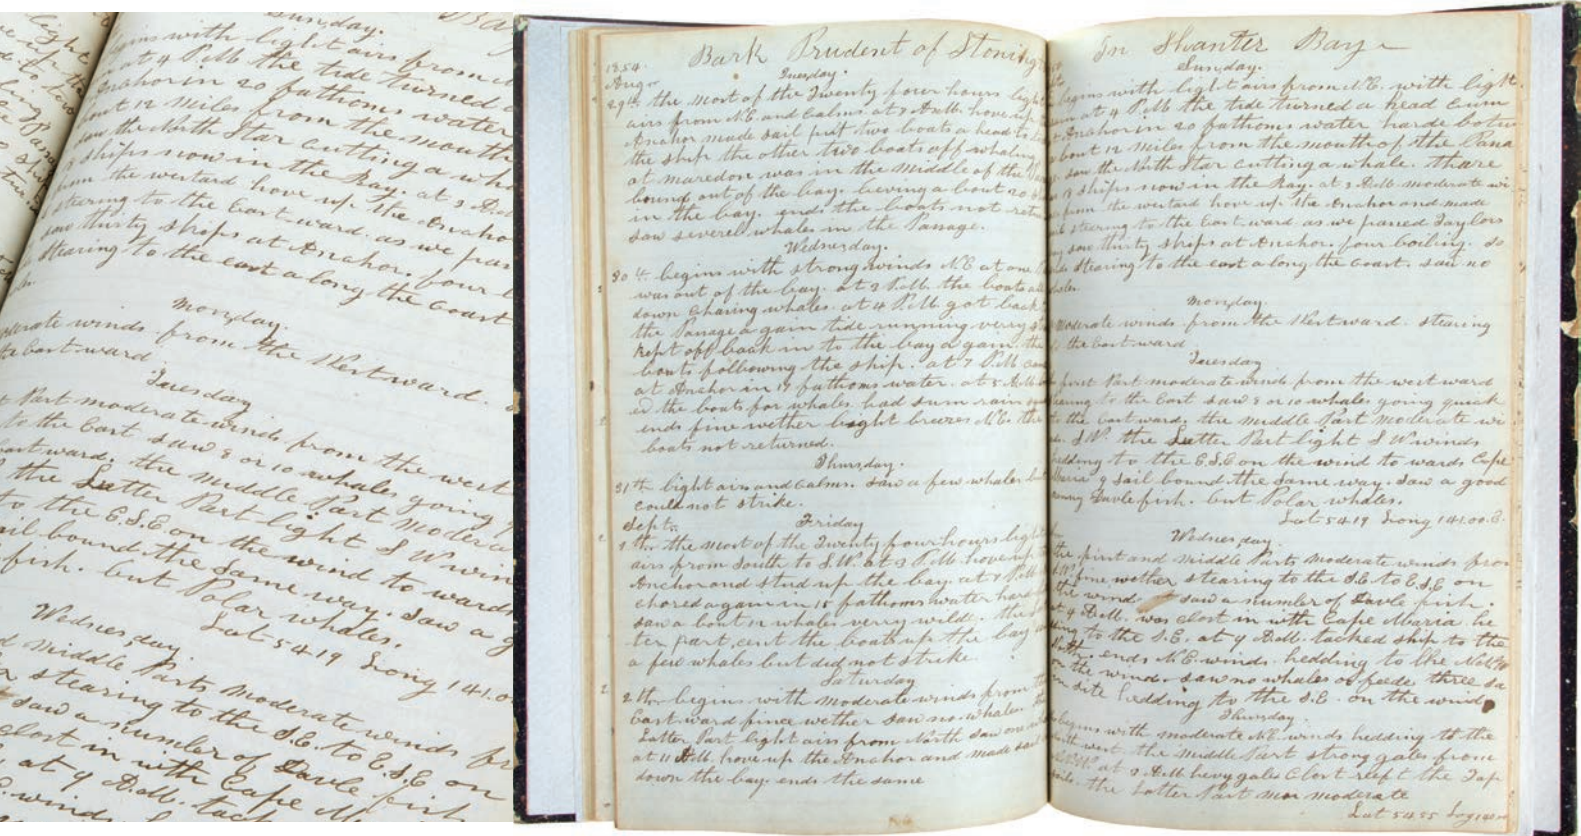 Sunday.
begins with light airs from
at 4 P.M the tide turned a
Anchor in 20 fathoms water
bout 12 miles from the mouth
saw the North Star cutting a wha
ships now in the Bay. at 3 A.M
from the westard hove up the Ancho
stearing to the East ward. as we pas
saw thirty ships at Anchor. four b
stearing to the east a long the Coast
Monday.
moderate winds. from the Westward.
the East ward
Tuesday
Part moderate winds from the west
to the East saw 8 or 10 whales going
eastward. the middle Part modera
the Latter Part light S W win
to the E.S.E on the wind to wards
sail bound the same way. Saw a g
fish. but Polar whales.
Lat 54 19 Long 141.0
Wednesday.
d middle Parts moderate winds fr
stearing to the S.E. to E.S.E. on
saw a number of Davle fish
clost in with Cape M
at 9 A.M. tack
winds
Bark Prudent of Stoning
1854.
Tuesday.
Augr
29th the most of the Twenty four hours light
airs from N.E. and Calms at 7 A.M. hove up
Anchor made sail put two boats a head to
the ship the other two boats off whaling
at maredon was in the middle of the
bound out of the bay. being a bout 20
in the bay. ends the boats not retur
saw severel whales in the Passage.
Wednesday.
30th begins with strong winds N.E at one
was out of the bay. at 2 P.M. the boats a
down Chasing whales. at 4 P.M. got back
the Passage a gain tide running verry
kept off back in to the bay a gain the
boats following the ship. at 7 P.M. ca
at Anchor in 17 fathoms water. at 5 A.M.
ed the boats for whales had sum rain
ends fine wether light breezes N.E. the
boats not returned.
Thursday.
31th light airs and Calms. Saw a few whales b
could not strike.
Sept.
Friday
1th the most of the Twenty four hours light
airs from South to S.W. at 3 P.M. hove up
Anchor and stud up the bay. at 7 P.M.
chored again in 15 fathoms water hard
saw a bout 12 whales verry wilde. the
ter part sent the boats up the bay
a few whales but did not strike.
Saturday
2th begins with moderate winds from
East ward fine wether saw no whales
Latter Part light airs from North saw one
at 11 A.M. hove up the Anchor and made sail
down the bay. ends the same
In Shanter Bay
Sunday.
begins with light airs from N.E. with light
at 4 P.M the tide turned a head Cum
Anchor in 20 fathoms water harde botu
bout 12 miles from the mouth of the Pana
saw the North Star cutting a whale. thare
ships now in the Bay. at 3 A.M moderate wi
from the westard hove up the Anchor and made
stearing to the East ward as we passed Taylors
saw thirty ships at Anchor. four boiling. so
stearing to the east a long the Coast. saw no
whales.
Monday.
moderate winds. from the Westward. stearing
the East ward
Tuesday
first Part moderate winds from the west ward
stearing to the East saw 8 or 10 whales going quick
to the East ward. the middle Part moderate wi
S.W. the Latter Part light S W winds
hedding to the E.S.E on the wind to wards Cape
Maria 9 sail bound the same way. Saw a good
many Davle fish. but Polar whales.
Lat 54 19 Long 141.00 E.
Wednesday.
the first and middle Parts moderate winds from
fine wether stearing to the S.E. to E.S.E on
the wind saw a number of Davle fish.
at 4 A.M. was clost in with Cape Maria he
ding to the S.E. at 9 A.M. tacked ship to the
North. ends N.E. winds. hedding to the N.N.W
on the wind. saw no whales or feede three sa
in site hedding to the S.E. on the wind
Thursday.
begins with moderate N.E. winds hedding to the
west the middle Part strong gales from
at 3 A.M hevy gales Clost reeft the Top
sails. the Latter Part mor moderate
Lat 54 55 Log 140